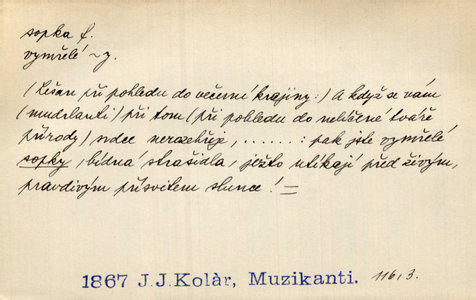 sopka f.
vymřelé ~y.
(Lešan při pohledu do večerní krajiny:) A když se vám
(mudrlanti) při tom (při pohledu do nelíčené tváře
přírody) srdce nerozehřeje, . . . . . . : pak jste vymřelé
sopky, bídna strašidla, ježto utíkají před živým,
pravdivým přísvitem slunce! =
1867 J.J.Kolàr, Muzikanti. 116,3.